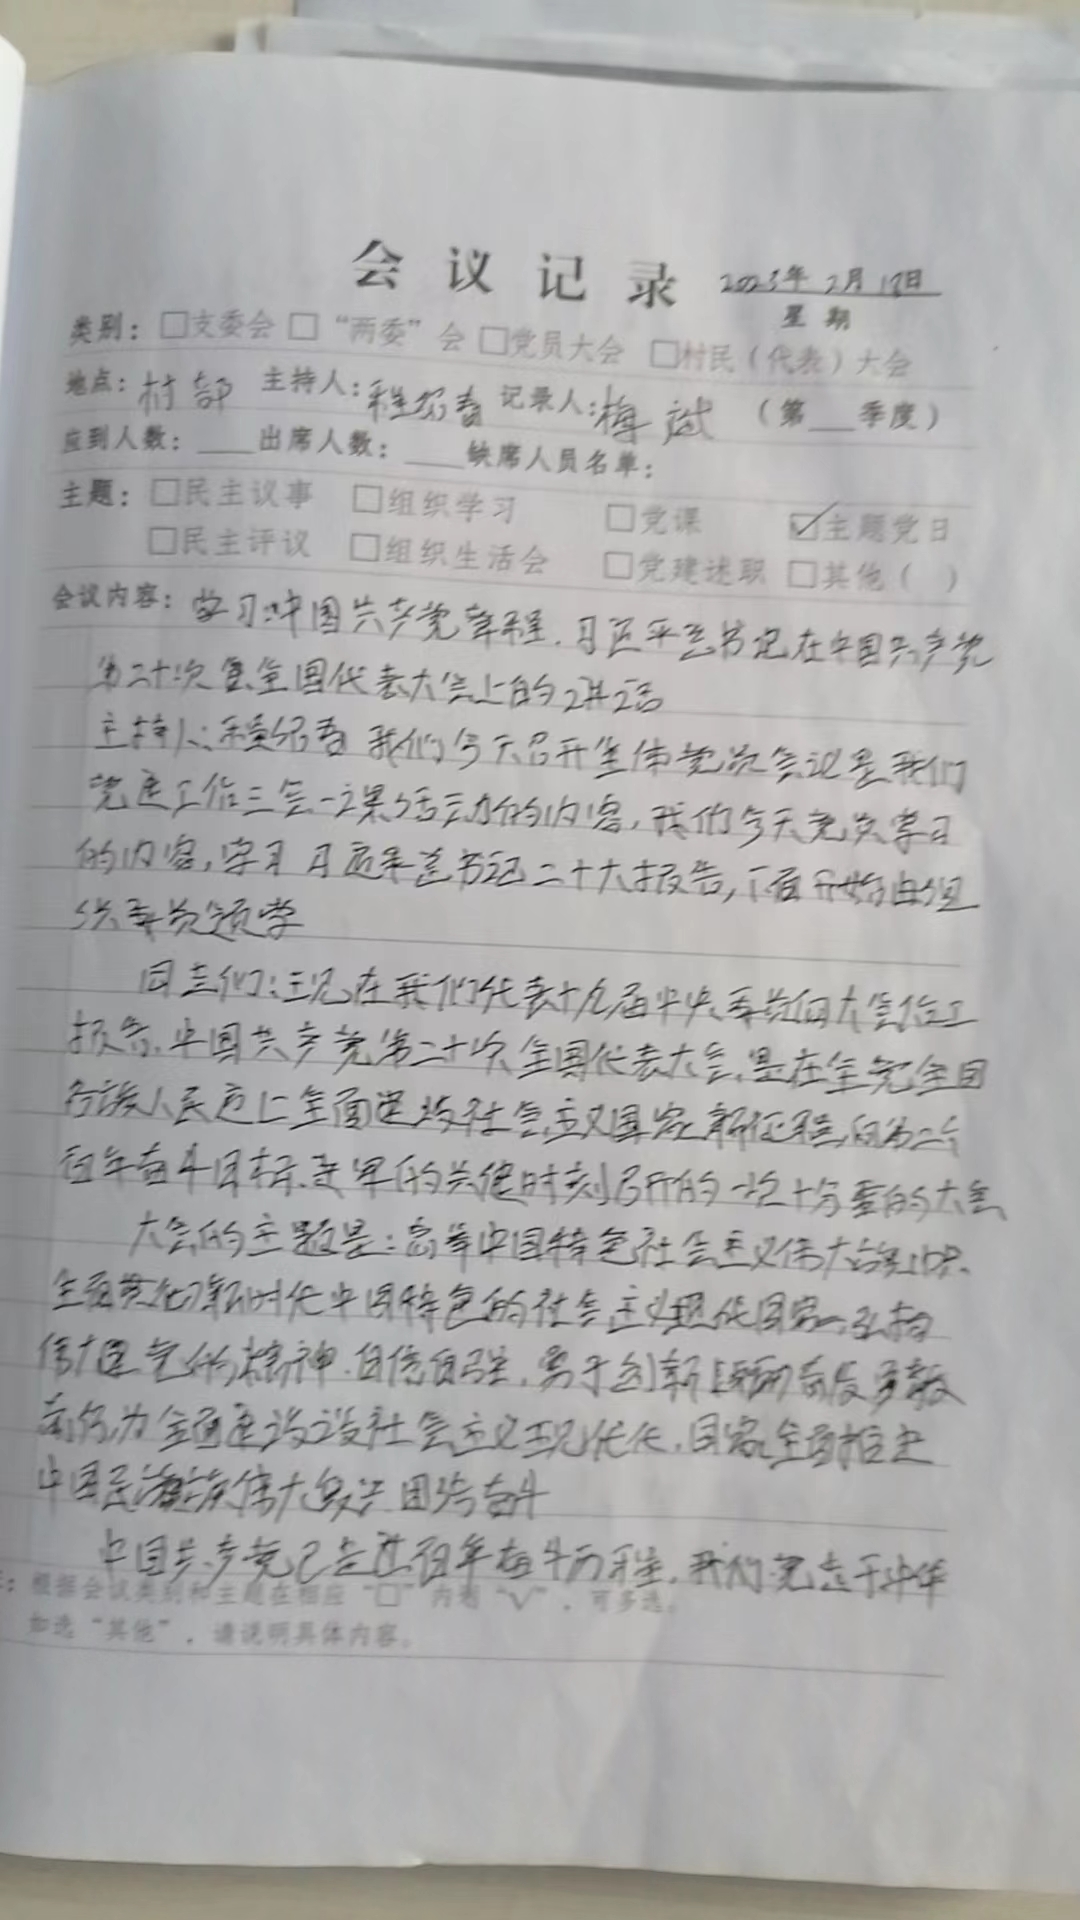 会议记录 2023年2月18日
星期
类别：□支委会 □“两委”会 □党员大会 □村民（代表）大会
地点：村部 主持人：程绍春 记录人：梅斌 （第___季度）
应到人数：___出席人数：___缺席人员名单：
主题：□民主议事 □组织学习 □党课 ☑主题党日
□民主评议 □组织生活会 □党建述职 □其他（ ）
会议内容：学习：中国共产党章程、习近平总书记在中国共产党
第二十次全国代表大会上的讲话
主持人：程绍春 我们今天召开全体党员会议是我们
党建工作三会一课活动的内容，我们今天党员学习
的内容，学习习近平总书记二十大报告，下面开始由组
织委员领学
同志们：现在我们代表十九届中央委员会向大会作工
报告、中国共产党第二十次全国代表大会、是在全党全国
各族人民迈上全面建设社会主义国家新征程向第二个
百年奋斗目标进军的关键时刻召开的一次十分重的大会
大会的主题是：高举中国特色社会主义伟大
全面 新时代中国特色的社会主义 国家 弘扬
伟大建党的精神、自信自强，勇于创新 奋发 勇毅
前行，为全面建设设社会主义现代化、国家、全面推进
中国民族伟大复兴团结奋斗
中国共产党已走过百年奋斗历程，我们党立于中华
：根据会议类别和主题在相应“□”内划“√”，可多选。
如选“其他”，请说明具体内容。